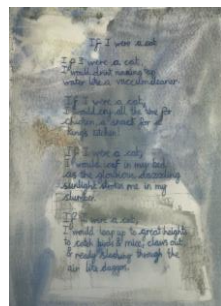 If I were a cat
If I were a cat,
I would
water like a vaccum cleaner.
If I were a cat,
I would cry all the time for
chicken, a snack for a
kings kitchen!
If I were a cat,
I would in my bed,
as the glorious,
sunlight strokes me in my
slumber.
If I were a cat,
I would leap up to great heights
to catch birds & mice, claws out,
& ready slashing through the
air like daggers.